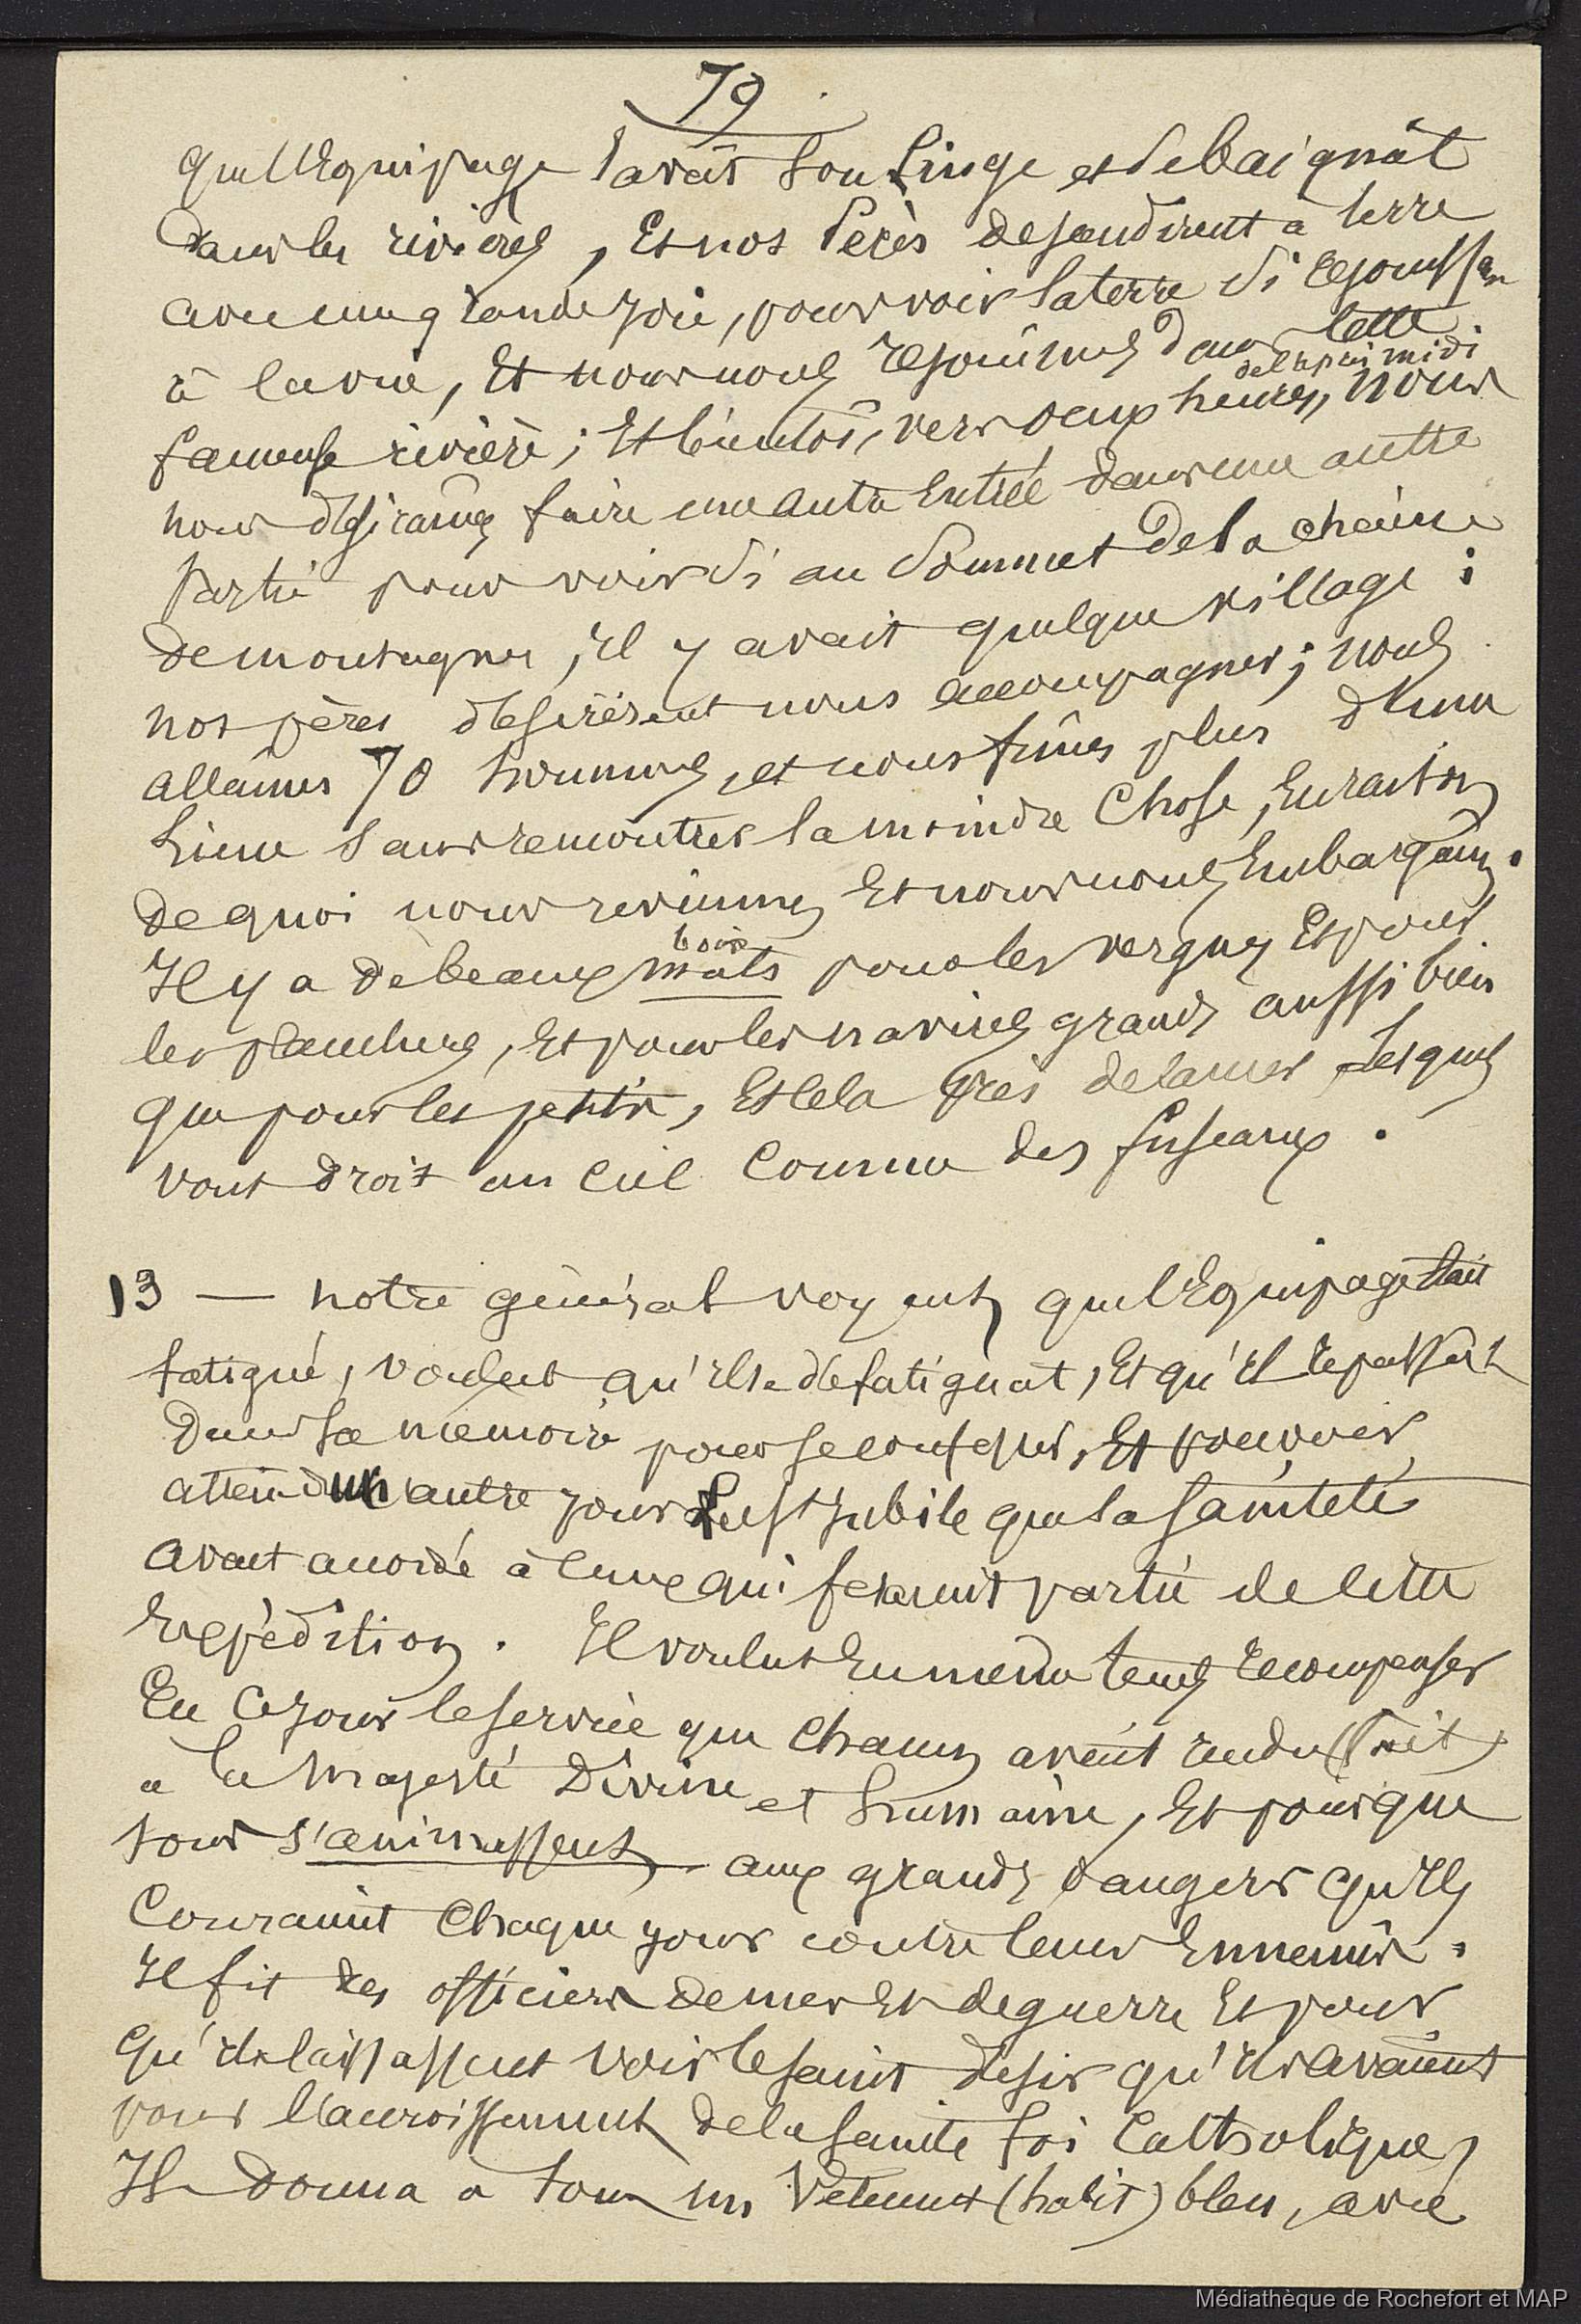 79
que l'Equipage lavât son Linge et se baignât
dans les rivières, Et nos Pères descendirent à terre
avec une grande joie, pour voir la terre si rejouissan
à la vue, Et nous nous rejouîmes dans cette
fameuse rivière ; Et bientôt, vers deux heures, de l'après midi nous
nous désirâmes faire une autre Entrée dans une autre
partie pour voir si au Sommet de la chaine
de montagnes, il y avait quelque village ;
nos pères désirèrent nous accompagner ; nous
allâmes 70 hommes, et nous fîmes plus d'une
Lieue sans remontrer la moindre Chose, En raison
de quoi nous revînmes Et nous nous Embarqâmes.
Il y a de beaux bois mâts pour les vergues Et pour
les planches, Et pour les navires grands aussi bien
que pour les petits, Et cela près de la mer, Lesquels
vont droit au Ciel Comme des fuseaux.
13 — notre général voyant que l'Equipage était
fatigué, voulut qu'il se défatiguat, Et qu'il repassat
dans sa mémoire pour se confesser, Et pouvoir
atteindre un autre jour Jubilé que sa Sainteté
avait accordé à ceux qui feraient partie de cette
Expédition. Il voulut En même temps récompenser
En ce jour le service que Chacun avait rendu (fait)
à la Majesté Divine et humaine, Et pour que
tous s'animassent aux grands dangers qu'Ils
Couraient Chaque jour contre leurs Ennemis.
Il fit des officiers de mer Et de guerre Et pour
qu'ils laissassent voir le saint désir qu'ils avaient
pour l'accroissement de la Sainte foi Catholique,
Il donna à tous un Vêtement (habit) bleu, avec
Médiathèque de Rochefort et MAP